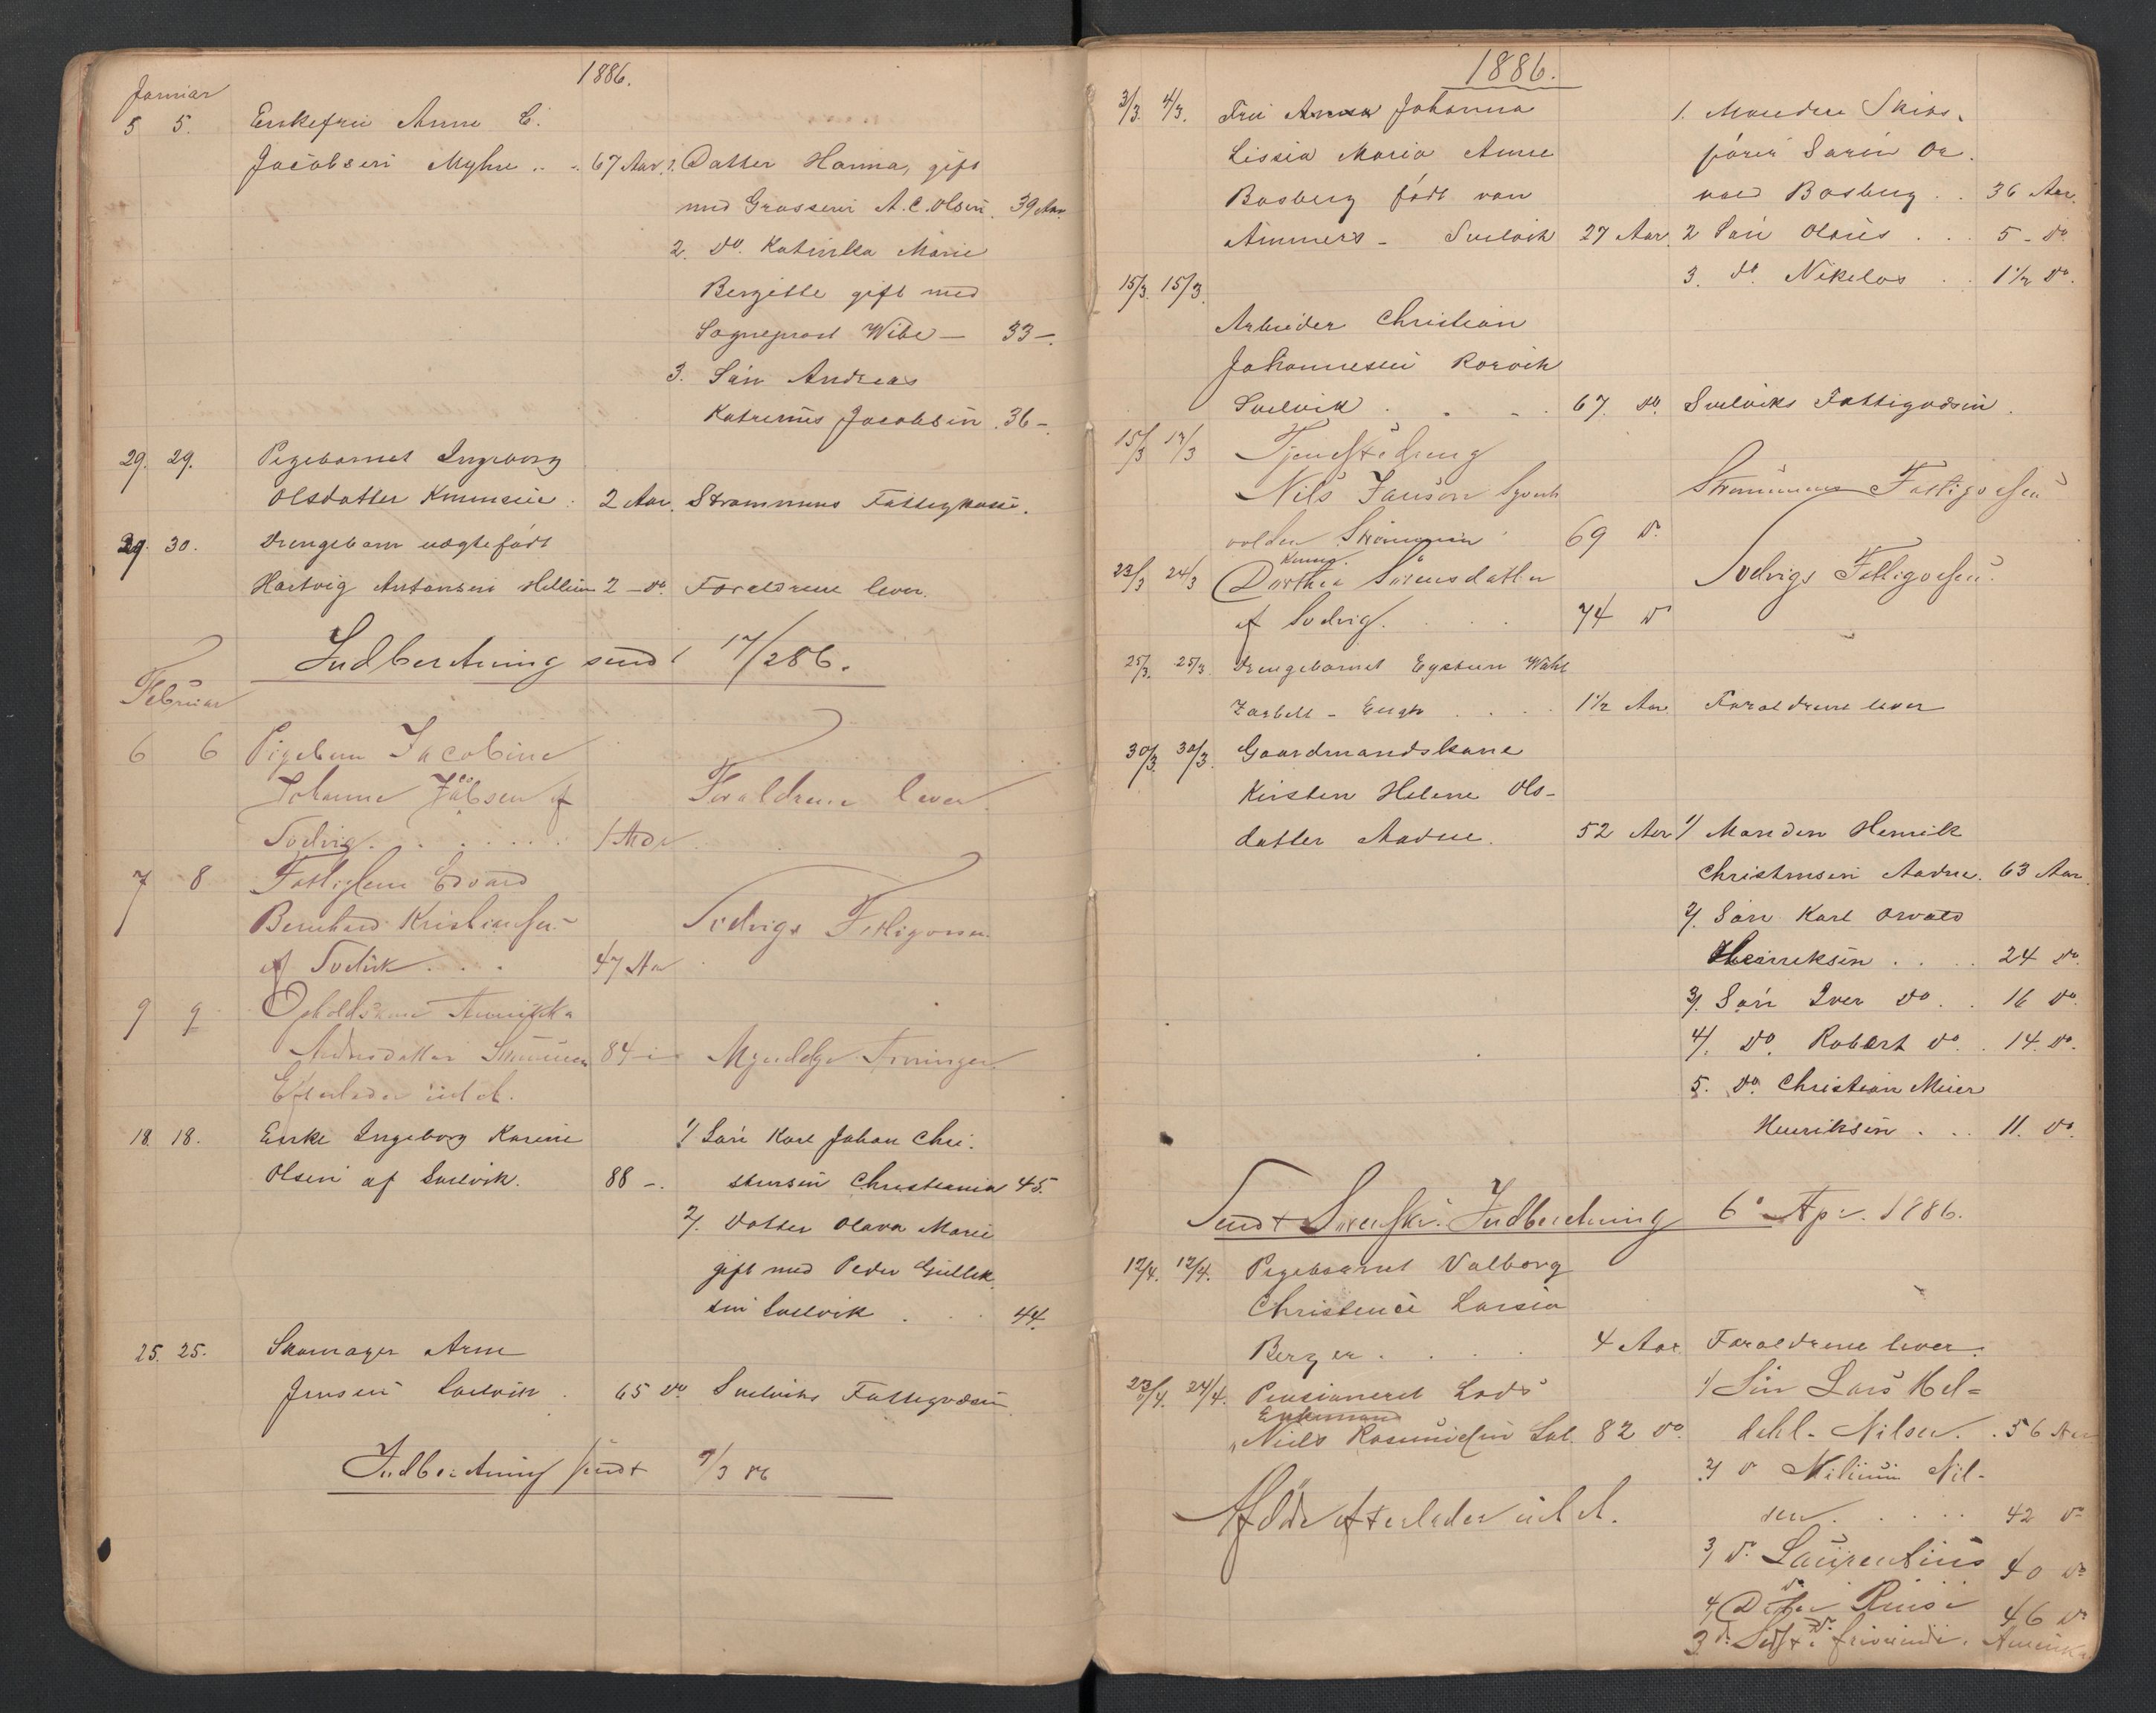 1886.
Januar
5 5. Enkefru Anne C.
Jacobsen Myhre .. . 67 Aar. 1. Datter Hanna, gift
med Grosserer A. C. Olsen. 39 Aar.
2. Do. Katinka Marie
Bergitte gift med
Sogneprest Wibe — 33 —.
3. Søn Andreas
Katrinus Jacobsen. 36 —.
29. 29. Pigebarnet Ingeborg
Olsdatter 2 Aar. Strømmens Fattigkasse.
29. 30. Drengebarn uægtefødt
Hartvig Antonsen 2 — do. Forældrene lever.
Indberetning sendt 17/2 86.
Februar
6 6 Pigebarn Jacobine
Johanne af Forældrene lever.
Svelvig . . . . . 1 Mdr
7 8 Fattiglem Edvard
Bernhard Kristiansen Svelvigs Fattigvæsen
af Svelvik . . . 47 Aar
9 9 Annikka
84 Myndige Arvinger
Efterlader intet.
18. 18. Enke Ingeborg Karine 1/ Søn Karl Johan Chri-
Olsen af Svelvik. 88 —. stensen Christiania 45.
2/. Datter Olava Marie
gift med Peder Gullik
sen Svelvik . . . 44.
25. 25. Skomager Arne
Jensen Svelvik . 65 do Svelviks Fattigvæsen
Indberetning sendt 9/3 86
1886.
3/3. 4/3. Fru Anna Johanna 1. Manden Skibs-
Lissia Maria Anne fører Søren Os-
Basberg født van vald Basberg . . 36 Aar.
Ammers - Svelvik 27 Aar. 2 Søn Olaus . . . 5 - do
3. do. Nikelas . . 1 1/2 do.
15/3. 15/3.
Arbeider Christian
Johannesen Rørvik
Svelvik . . . . 67. do. Svelviks Fattigvæsen.
15/3 17/3 Tjenestedreng
Nils Janson Strømmens Fattigvæsen
volden Strømmen 69 do.
23/3 24/3 Dorthea Sørensdatter Svelvigs Fattigvæsen.
af Svelvig. . . . 74 do
25/3. 25/3 Drengebarnet Eystein Wahl
1 1/2 Aar. Forældrene lever
30/3. 30/3. Gaardmandskone
Kirsten Helene Ols-
datter Aadne. 52 Aar 1/ Manden Henrik
Christensen Aadne. 63 Aar.
2/. Søn Karl Osvald
Henriksen . . . . 24 do.
3/. Søn Iver do . . 16 do.
4/. do. Robert do . . 14. do.
5. do. Christian Meier
Henriksen . . . 11. do.
Sendt Indberetning 6. Apr. 1886.
12/4. 12/4. Pigebarnet Valborg
Christence Larsen
Berger . . . . 4 Aar Forældrene lever.
23/4. 24/4. Pensioneret Lods 1/ Søn Lars Mel-
Enkemand
Niels 82 do. dahl - Nilsen. . 56 Aar
2/ do Nil-
sen . . . . . 42 do
Afdøde efterlader intet.
3/ do. Laurentius 40 do
4/ 46 do
Amerika